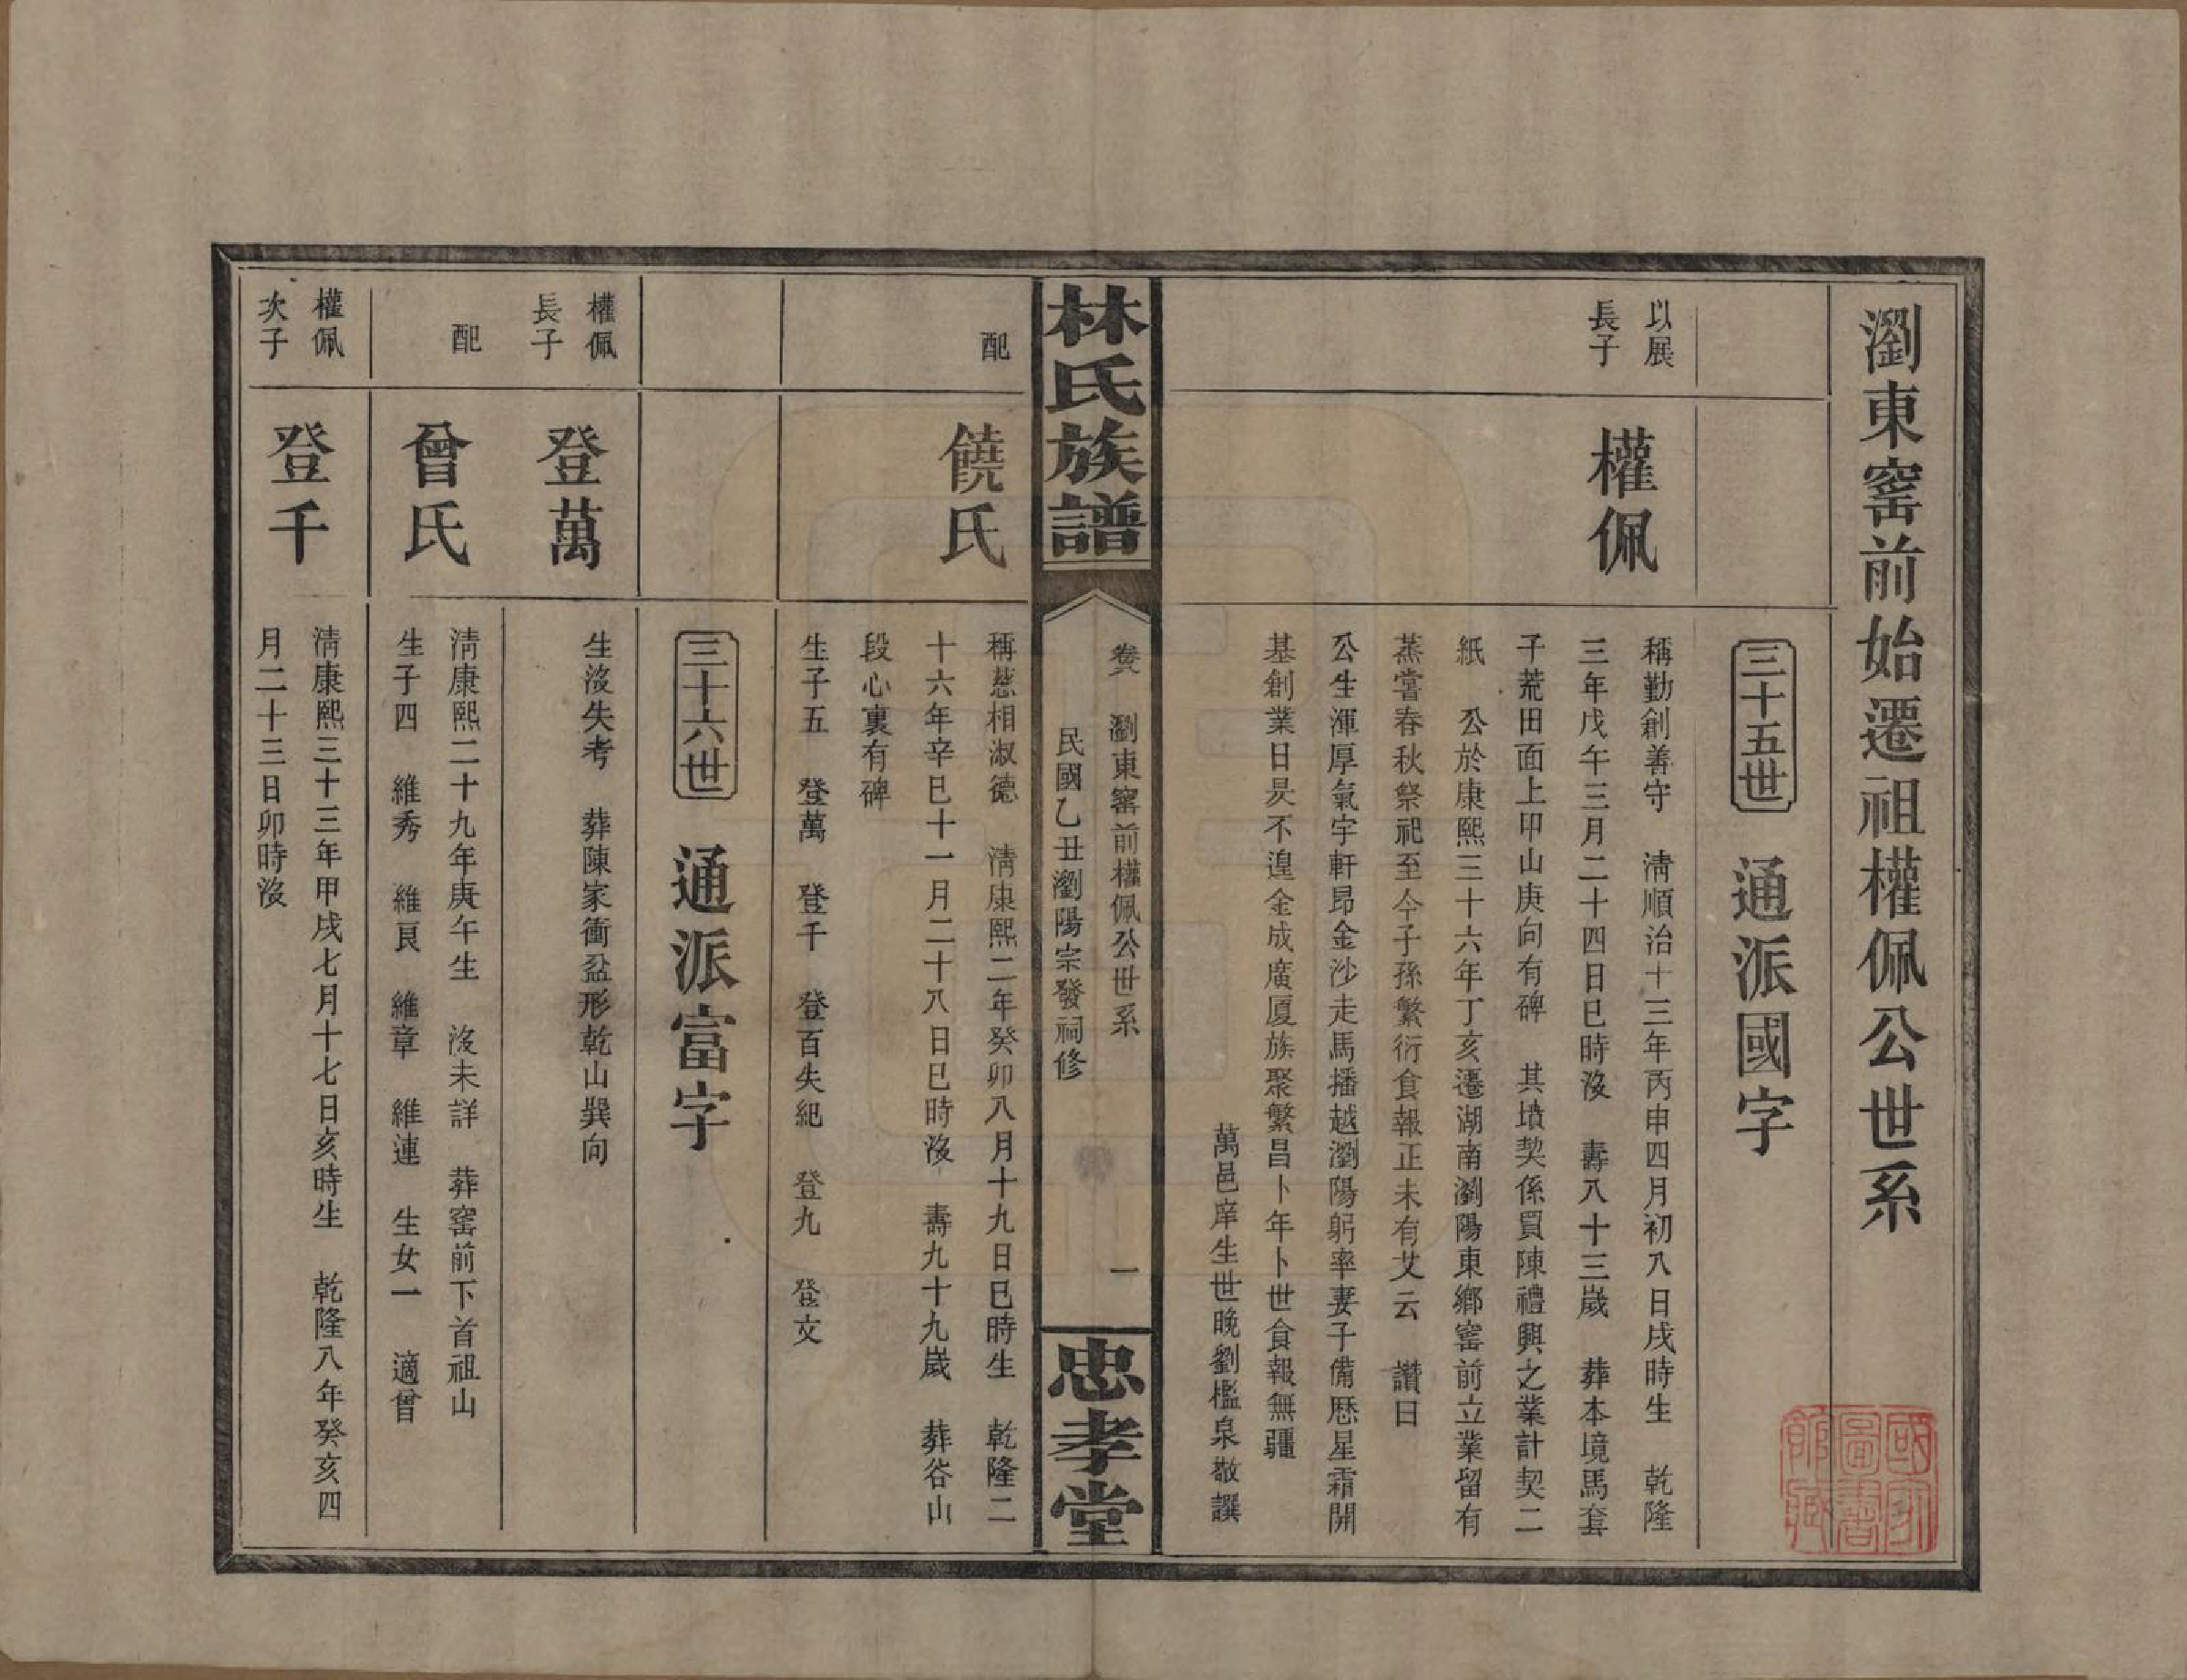 瀏東窰前始遷祖權佩公世系
三十五世 通派國字
以展
長子
權佩
稱勤創善守 清順治十三年丙申四月初八日戌時生 乾隆
三年戊午三月二十四日巳時沒 壽八十三歲 葬本境馬套
子荒田面上甲山庚向有碑 其墳契係買陳禮興之業計契二
紙 公於康熙三十六年丁亥遷湖南瀏陽東鄉窰前立業留有
蒸嘗春秋祭祀至今子孫繁衍食報正未有艾云 讚曰
公生渾厚氣宇軒昂金沙走馬播越瀏陽躬率妻子備歷星霜開
基創業日昃不遑金成廣厦族聚繁昌卜年卜世食報無疆
萬邑庠生世晚劉檻泉敬譔
林氏族譜
卷八 瀏東窰前權佩公世系 一
民國乙丑瀏陽宗發祠修
忠孝堂
配
饒氏
稱慈相淑德 清康熙二年癸卯八月十九日巳時生 乾隆二
十六年辛巳十一月二十八日巳時沒 壽九十九歲 葬谷山
段心裏有碑
生子五 登萬 登千 登百失紀 登九 登文
三十六世 通派富字
權佩
長子
登萬
生沒失考 葬陳家衝盆形乾山巽向
配
曾氏
清康熙二十九年庚午生 沒未詳 葬窰前下首祖山
生子四 維秀 維良 維章 維連 生女一 適曾
權佩
次子
登千
清康熙三十三年甲戌七月十七日亥時生 乾隆八年癸亥四
月二十三日卯時沒
國家圖書館藏